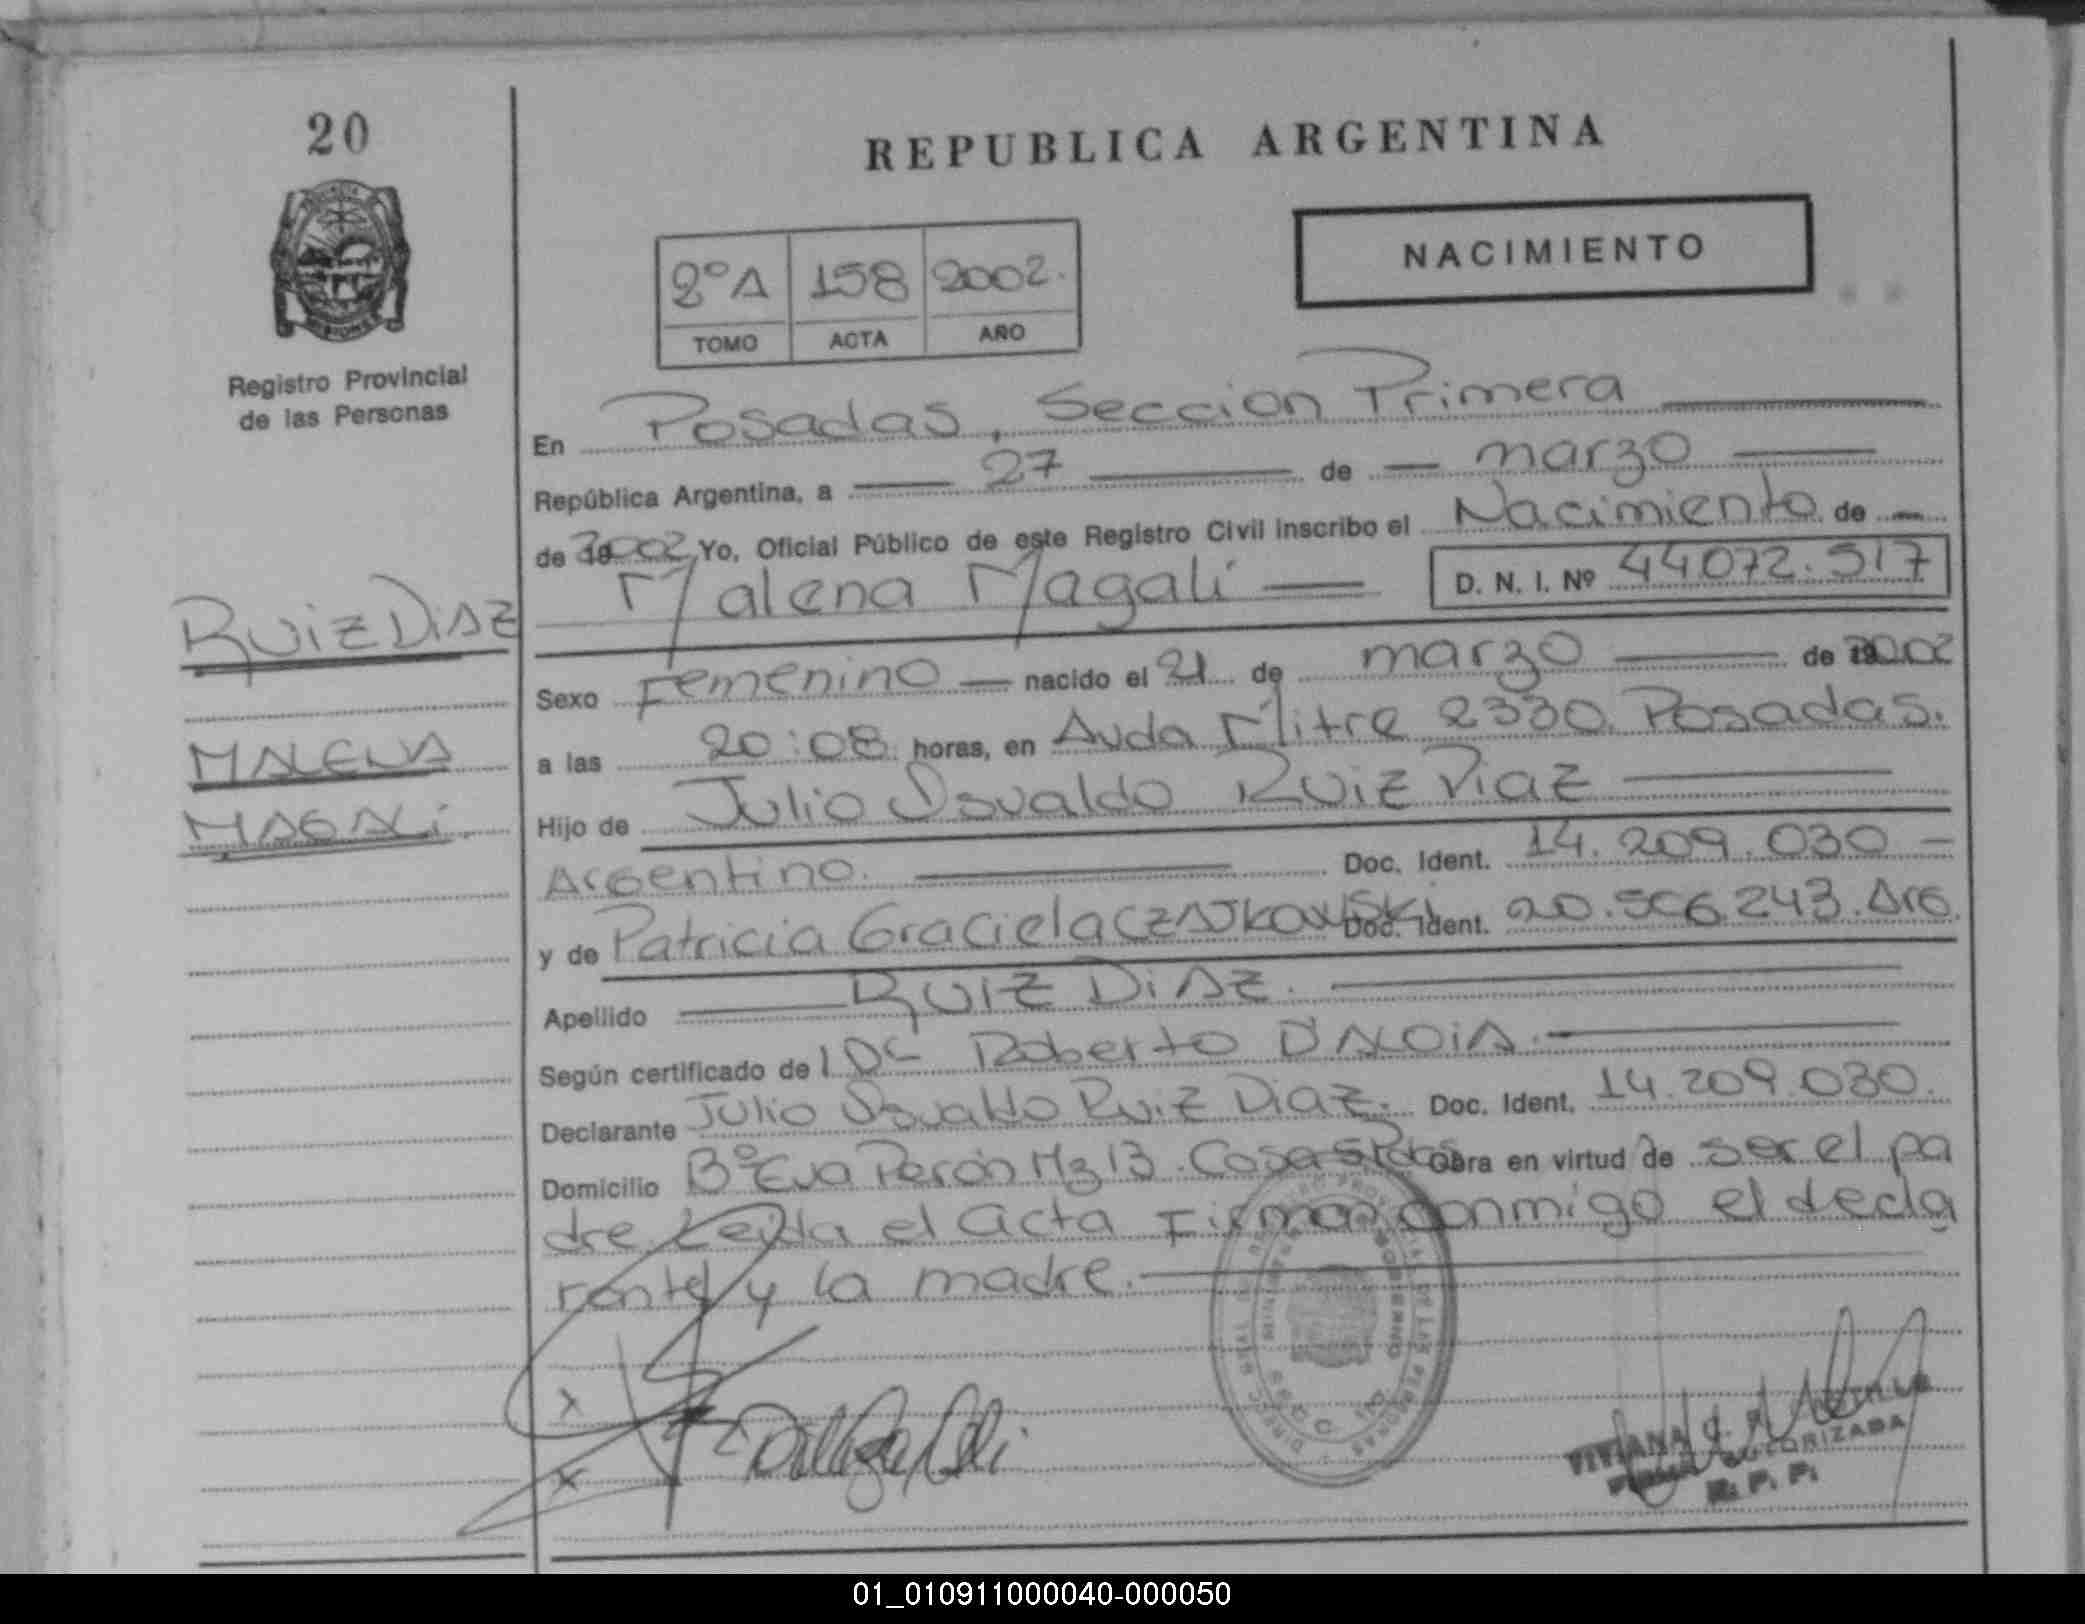 20
REPUBLICA ARGENTINA
NACIMIENTO
2º A 158 2002.
TOMO ACTA AÑO
Registro Provincial
de las Personas
En Posadas, Seccion Primera
República Argentina, a 27 de marzo
de 2002 Yo, Oficial Público de este Registro Civil inscribo el Nacimiento de
Malena Magalí D. N. I. Nº 44072.517
RUIZ DIAZ
MALENA
MAGALI.
Sexo Femenino nacido el 21 de marzo de 2002
a las 20:08 horas, en Avda Mitre 2330 Posadas.
Hijo de Julio Osvaldo Ruiz Diaz
Argentino. Doc. Ident. 14.209.030
y de Patricia Graciela CZAJKOWSKI Doc. Ident. 20.506.243. Arg.
Apellido RUIZ DIAZ.
Según certificado de Roberto D'ALOIA.
Declarante Julio Osvaldo Ruiz Diaz. Doc. Ident. 14.209.030.
Domicilio Bº Eva Perón Mz 13. Casa Obra en virtud de ser el pa
dre Leida el acta Firman conmigo el decla
rante y la madre.
x
x
VIVIANA
FIRMA AUTORIZADA
R. P. P.
01_010911000040-000050